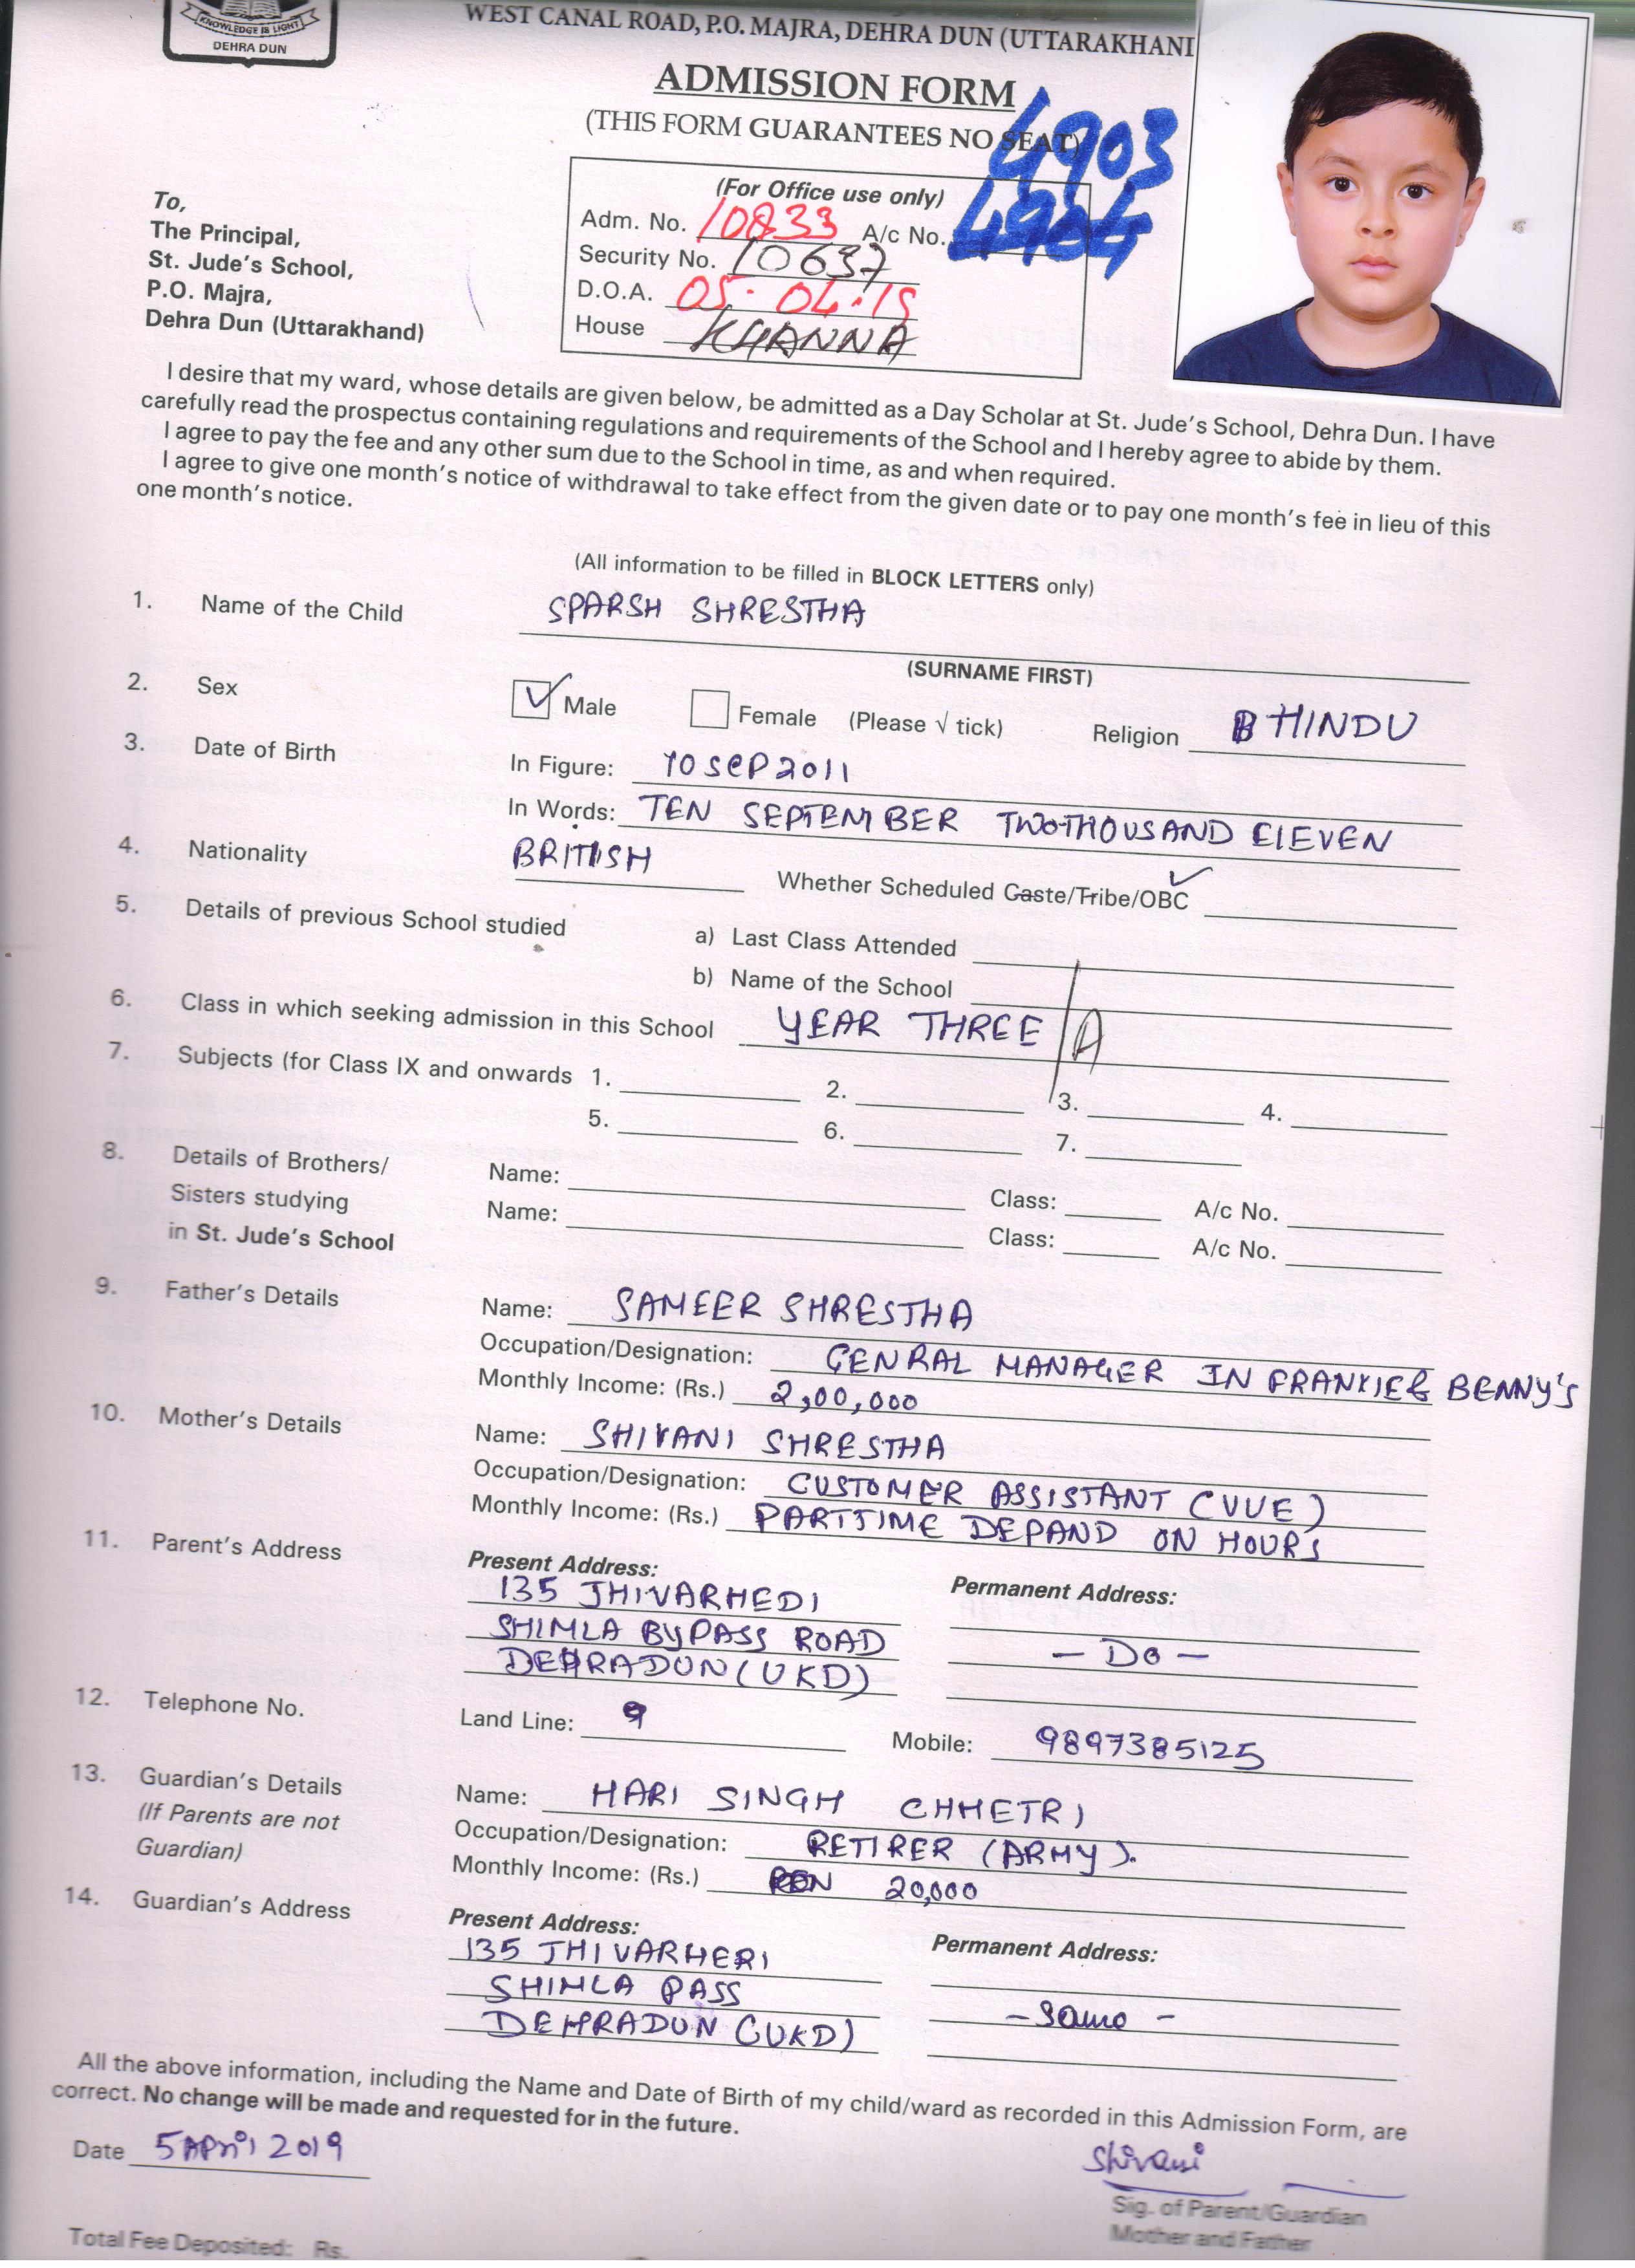 KNOWLEDGE IS LIGHT
DEHRA DUN
WEST CANAL ROAD, P.O. MAJRA, DEHRA DUN (UTTARAKHAN
ADMISSION FORM
(THIS FORM GUARANTEES NO SEAT)
4903
4904
To,
The Principal,
St. Jude's School,
P.O. Majra,
Dehra Dun (Uttarakhand)
(For Office use only)
Adm. No. 10833 A/c No.
Security No. 10637
D.O.A. 05.04.19
House KHANNA
I desire that my ward, whose details are given below, be admitted as a Day Scholar at St. Jude's School, Dehra Dun. I have
carefully read the prospectus containing regulations and requirements of the School and I hereby agree to abide by them.
I agree to pay the fee and any other sum due to the School in time, as and when required.
I agree to give one month's notice of withdrawal to take effect from the given date or to pay one month's fee in lieu of this
one month's notice.
(All information to be filled in BLOCK LETTERS only)
1. Name of the Child SPARSH SHRESTHA
(SURNAME FIRST)
2. Sex Male Female (Please √ tick) Religion HINDU
3. Date of Birth In Figure: 10 SEP 2011
In Words: TEN SEPTEMBER TWOTHOUSAND ELEVEN
4. Nationality BRITISH Whether Scheduled Caste/Tribe/OBC
5. Details of previous School studied a) Last Class Attended
b) Name of the School
6. Class in which seeking admission in this School YEAR THREE / A
7. Subjects (for Class IX and onwards 1. 2. 3. 4.
5. 6. 7.
8. Details of Brothers/ Name: Class: A/c No.
Sisters studying Name: Class: A/c No.
in St. Jude's School
9. Father's Details Name: SAMEER SHRESTHA
Occupation/Designation: GENRAL MANAGER IN FRANKIE & BENNY'S
Monthly Income: (Rs.) 2,00,000
10. Mother's Details Name: SHIVANI SHRESTHA
Occupation/Designation: CUSTOMER ASSISTANT (VUE)
Monthly Income: (Rs.) PARTTIME DEPAND ON HOURS
11. Parent's Address Present Address: Permanent Address:
135 JHIVARHEDI
SHIMLA BYPASS ROAD - DO -
DEHRADUN (UKD)
12. Telephone No. Land Line: 9 Mobile: 9897385125
13. Guardian's Details Name: HARI SINGH CHHETRI
(If Parents are not Occupation/Designation: RETIRER (ARMY).
Guardian) Monthly Income: (Rs.) 20,000
14. Guardian's Address Present Address: Permanent Address:
135 JHIVARHERI
SHIMLA PASS - Same -
DEHRADUN (UKD)
All the above information, including the Name and Date of Birth of my child/ward as recorded in this Admission Form, are
correct. No change will be made and requested for in the future.
Date 5 April 2019 Shivani
Sig. of Parent/Guardian
Mother and Father
Total Fee Deposited: Rs.